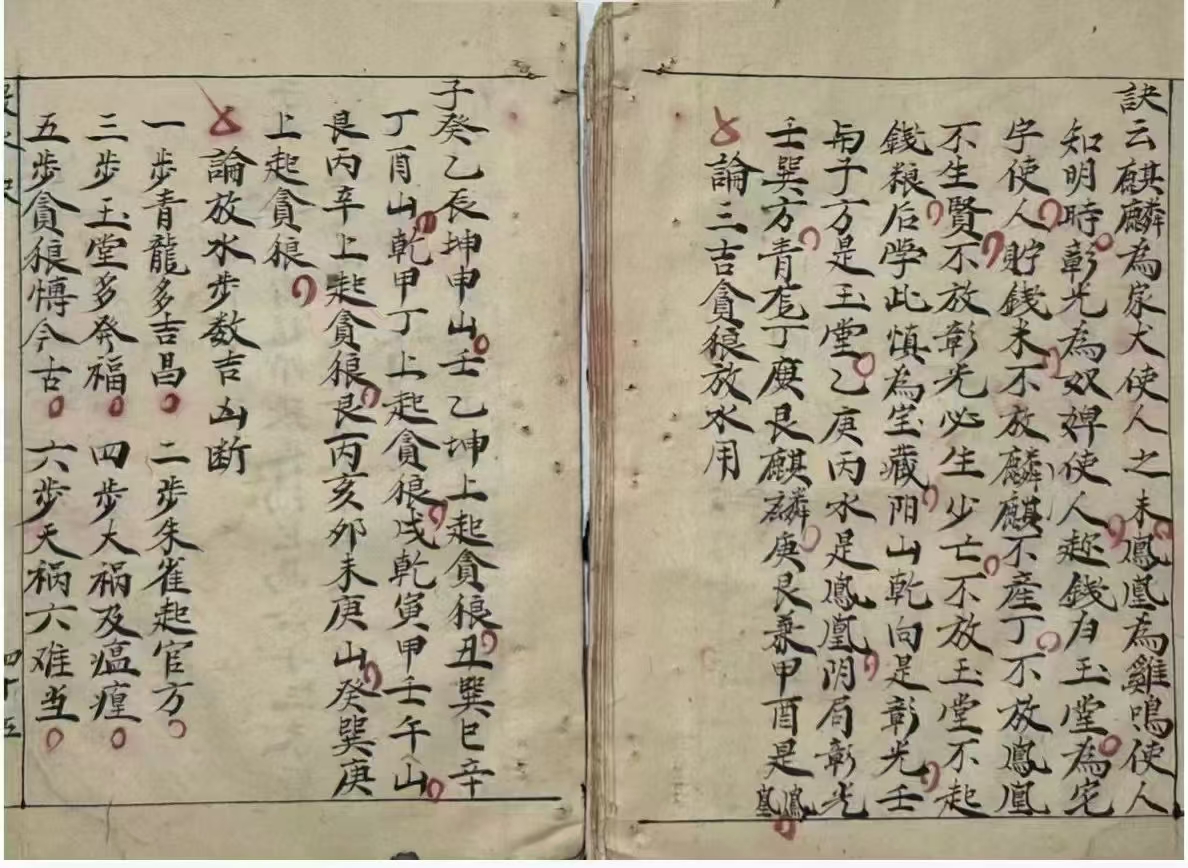 訣云麒麟為家犬使人之来鳳凰為雞鳴使人
知明時彰光為奴婢使人趂錢自玉堂為宅
字使人貯錢未不放麟麒不產丁不放鳳凰
不生賢不放彰光必生少亡不放玉堂不起
錢粮后学此慎為宝藏阳山乾向是彰光壬
丙子方是玉堂乙庚丙水是鳳凰阴局彰光
壬巽方青龙丁庚艮麒麟庚艮乘甲酉是鳳凰
論三吉貪狼放水用
子癸乙辰坤申山壬乙坤上起貪狼丑巽巳辛
丁酉山乾甲丁上起貪狼戌乾寅甲壬午山
艮丙辛上起貪狼艮丙亥卯未庚山癸巽庚
上起貪狼
論放水步数吉凶断
一步青龍多吉昌 二步朱雀起官方
三步玉堂多発福 四步大祸及瘟瘴
五步貪狼愽今古 六步天祸六难当
四十五